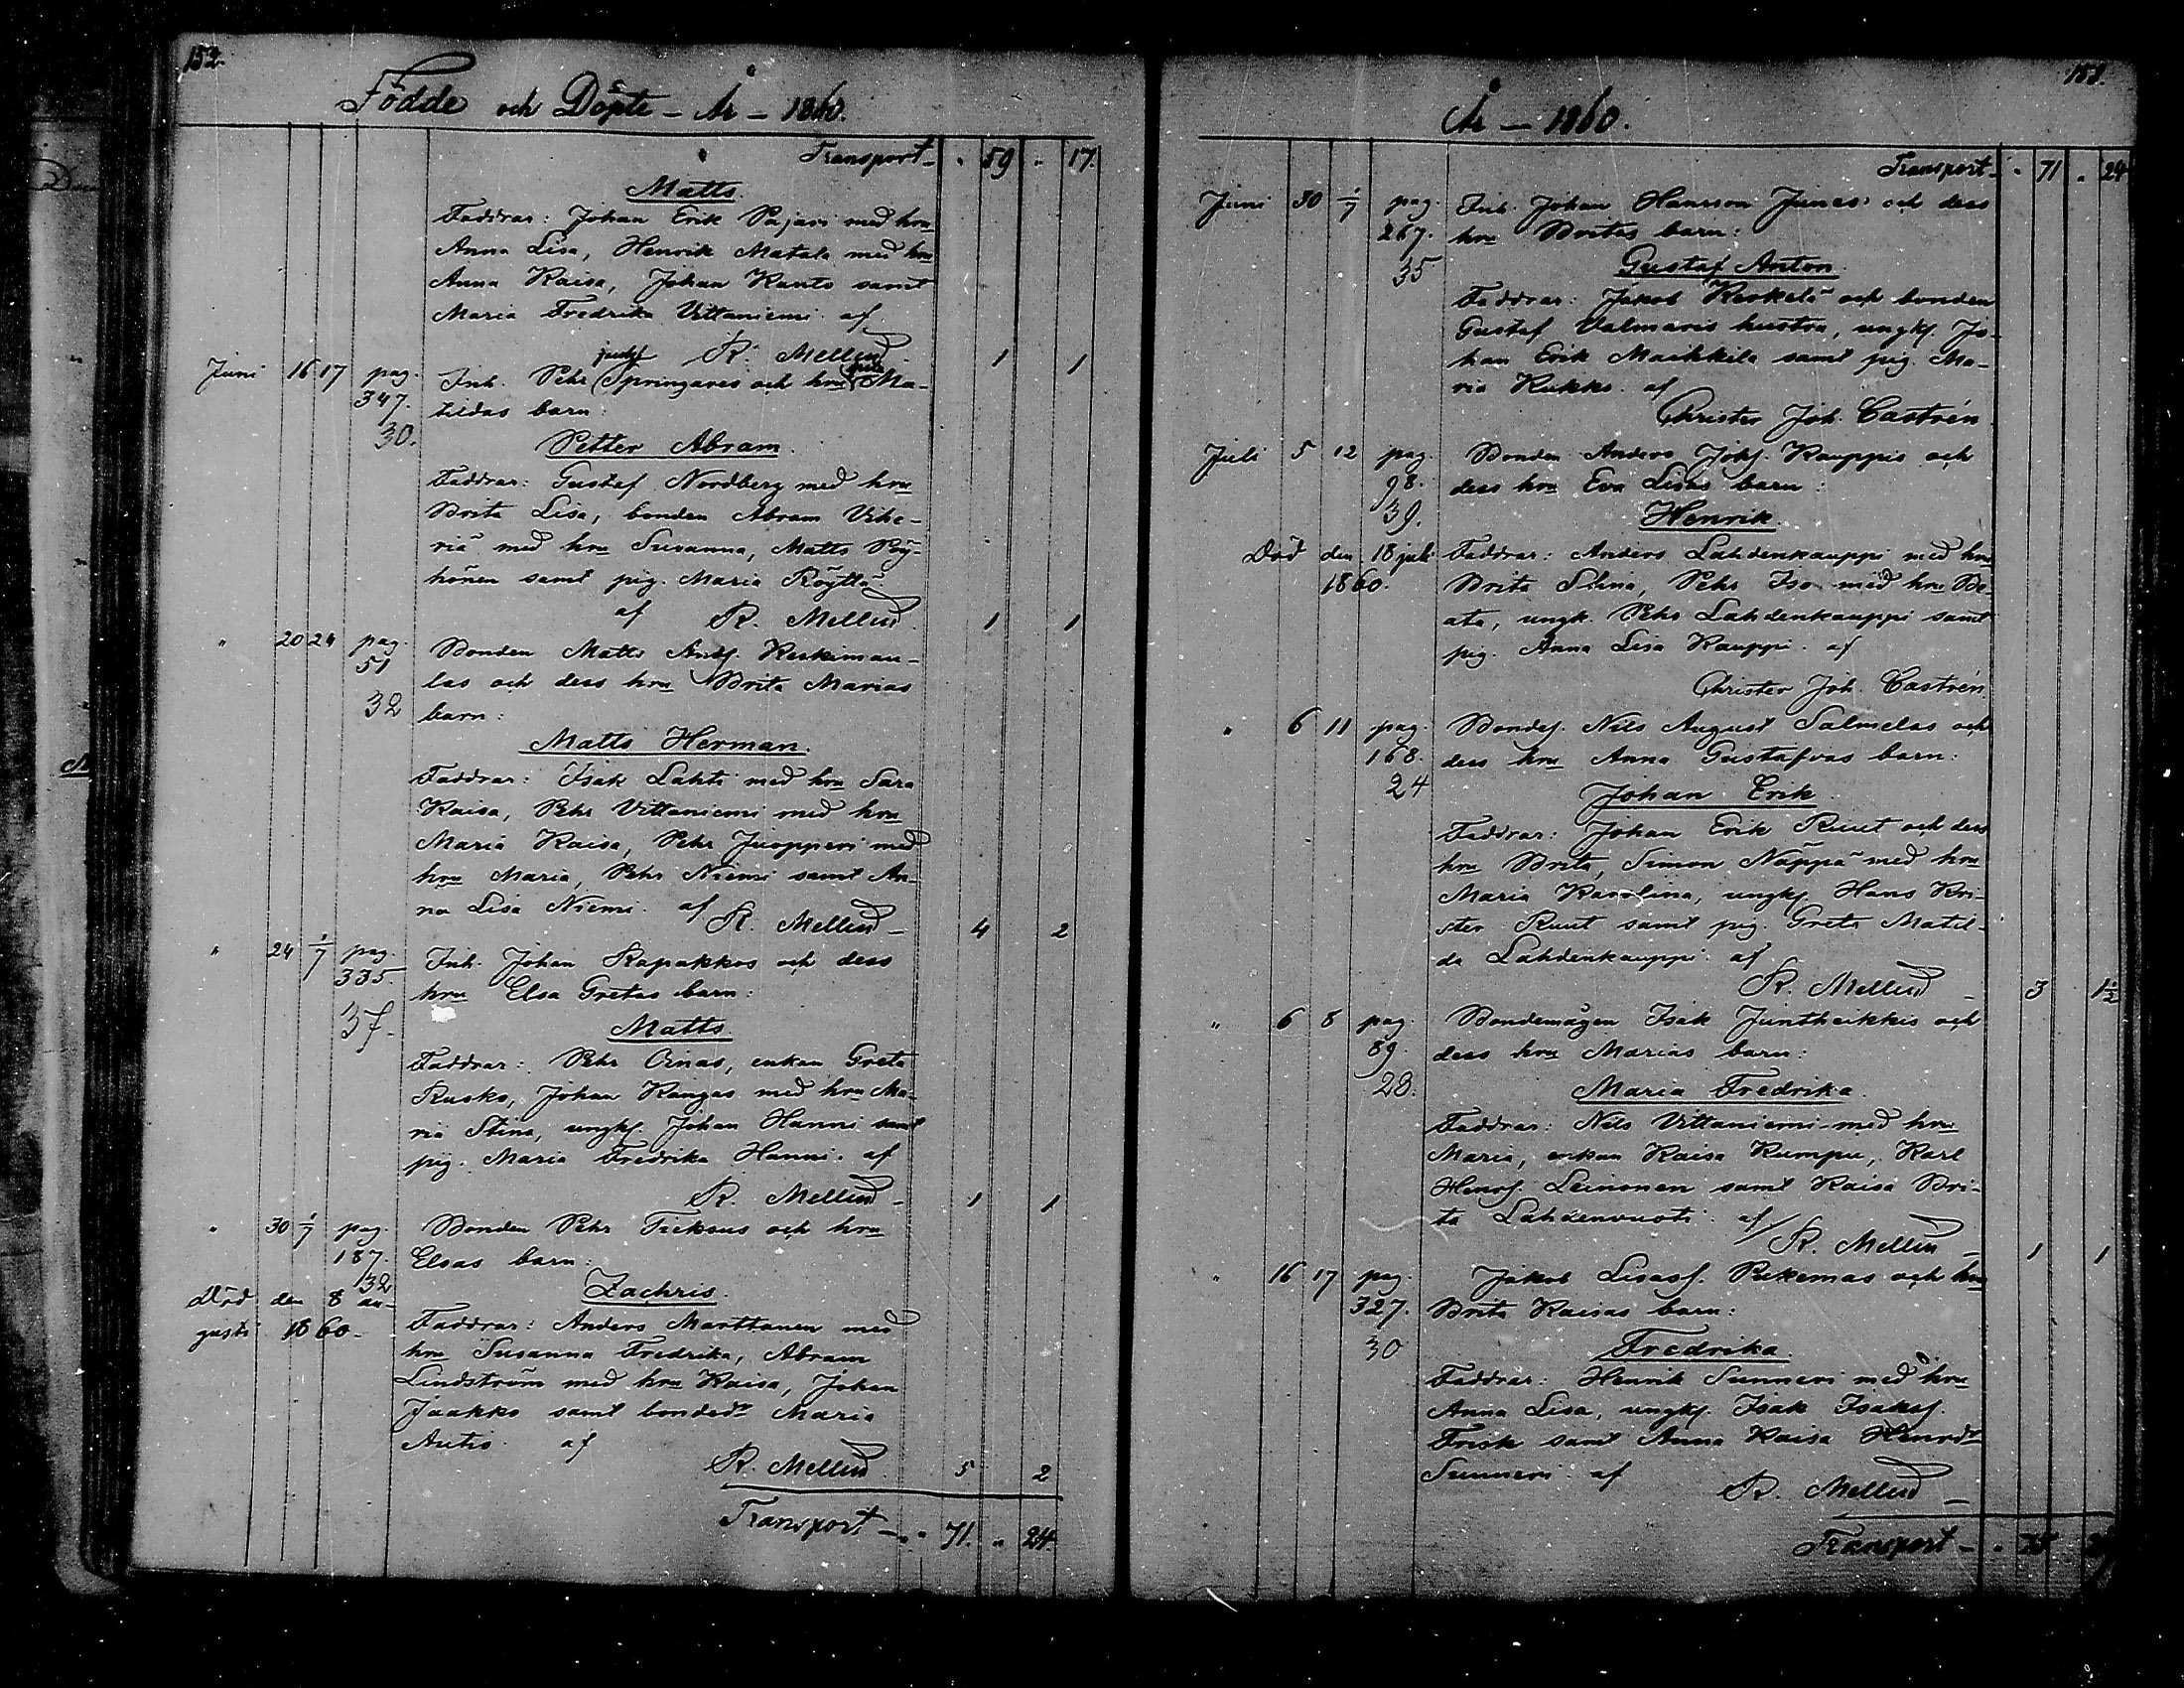 152.
Födde och Döpte - År - 1860.
Transport - " 59 " 17.
Matts.
Faddrar: Johan Erik Pajari med hru
Anna Lisa, Henrik Matala med hru
Anna Kaisa, Johan Kanto samt
Maria Fredrika Vittaniemi af
R. Mellin 1 1
Juni 16 17 pag. Inh. Pehr Springares och hru Ma-
347. tildas barn:
30.
Petter Abram.
Faddrar: Gustaf Nordberg med hru
Brita Lisa, bonden Abram Vihe-
riä med hru Susanna, Matts Pöy-
hönen samt pig. Maria Röyttä
af R. Mellin 1 1
" 20 24 pag. Bonden Matts Andf. Keskimau-
51 las och dess hru Brita Marias
32 barn:
Matts Herman.
Faddrar: Isak Lahti med hru Sara
Kaisa, Pehr Vittaniemi med hru
Maria Kaisa, Pehr Juopperi med
hru Maria, Pehr Niemi samt An-
na Lisa Niemi. af
R. Mellin - 4 2
" 24 1/7 pag. Inh. Johan Rapakkos och dess
335. hru Elsa Gretas barn:
37.
Matts.
Faddrar: Pehr Oinas, enkan Greta
Rusko, Johan Kangas med hru Ma-
ria Stina, ungkf. Johan Hanni samt
pig. Maria Fredrika Hanni. af
R. Mellin - 1 1
" 30 1/7 pag. Bonden Pehr Tieksos och hru
187. Elsas barn:
32
Zachris.
Död den 8 au-
gusti 1860.
Faddrar: Anders Marttanen med
hru Susanna Fredrika, Abram
Lindström med hru Kaisa, Johan
Jaakko samt bondedr Maria
Autio. af
R. Mellin 5 2
Transport - " 71. " 24.
153.
År - 1860.
Transport - " 71 " 24
Juni 30 1/7 pag. Inh. Johan Hansson Junes och dess
267. hru Britas barn:
35
Gustaf Anton.
Faddrar: Jakob Keskelä och bonden
Gustaf Valmaris hustru, ungkf. Jo-
han Erik Maikkila samt pig. Ma-
ria Kukko. af
Christer Joh. Castrén.
Juli 5 12 pag. Bonden Anders Johf. Kauppis och
98. dess hru Eva Lisas barn:
39.
Henrik.
Död den 18 juli
1860.
Faddrar: Anders Lahdenkauppi med hru
Brita Stina, Pehr Iso med hru Be-
ata, ungk. Pehr Lahdenkauppi samt
pig. Anna Lisa Kauppi. af
Christer Joh. Castrén.
" 6 11 pag. Bondef. Nils August Salmelas och
168. dess hru Anna Gustafvas barn:
24
Johan Erik
Faddrar: Johan Erik Ruut och dess
hru Brita, Simon Näppä med hru
Maria Karolina, ungkf. Hans Kri-
ster Ruut samt pig. Greta Matil-
da Lahdenkauppi. af
R. Mellin - 3 1½
" 6 8 pag. Bondemågen Isak Juntheikkis och
89. dess hru Marias barn:
28.
Maria Fredrika.
Faddrar: Nils Vittaniemi med hru
Maria, enkan Kaisa Kumpu, Karl
Henrf. Leinonen samt Kaisa Bri-
ta Lahdenvuoti. af
R. Mellin - 1 1
" 16 17 pag. Jakob Lisasf. Pukemas och hru
327. Brita Kaisas barn:
30
Fredrika.
Faddrar: Henrik Sunneri med hru
Anna Lisa, ungkf. Isak Isaksf.
Frisk samt Anna Kaisa Henrdr
Sunneri. af
R. Mellin -
Transport - "